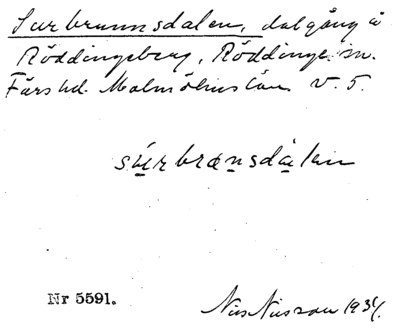 Surbrunnsdalen, dalgång å
Röddingeberg, Röddinge sn.
Färs hd. Malmöhus län V. 5.
súrbrønsdàlen
Nr 5591.
Nils Nilsson 1934.